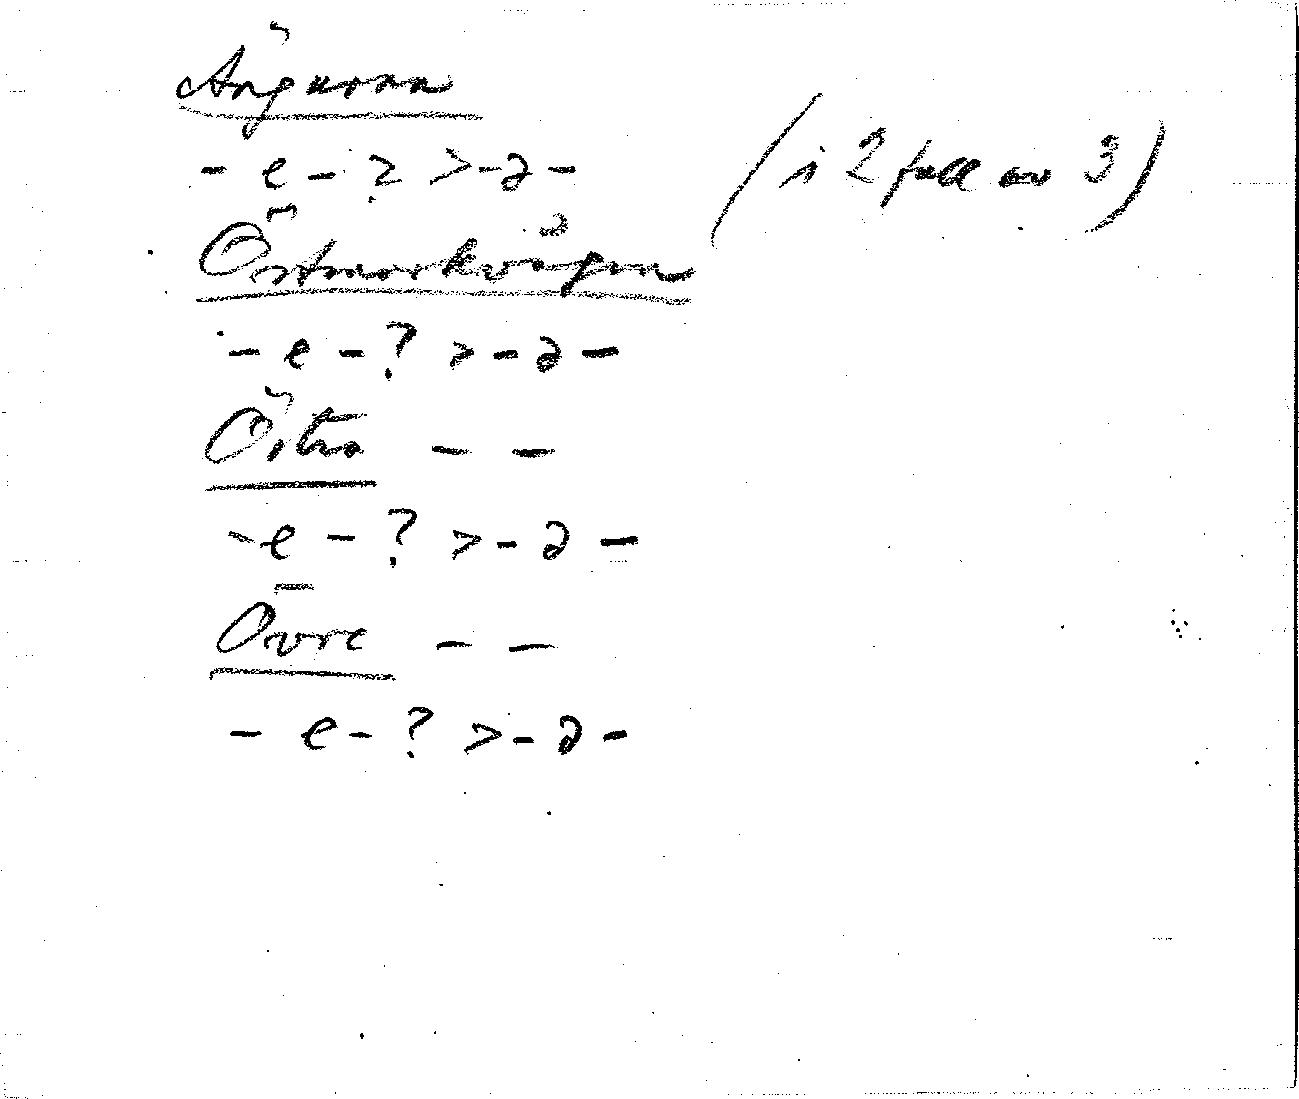 Ängarna
- e - ? > - ə - (i 2 fall av 3)
Östmarkvägen
- e - ? > - ə -
Östra - -
- e - ? > - ə -
Övre - -
- e - ? > - ə -